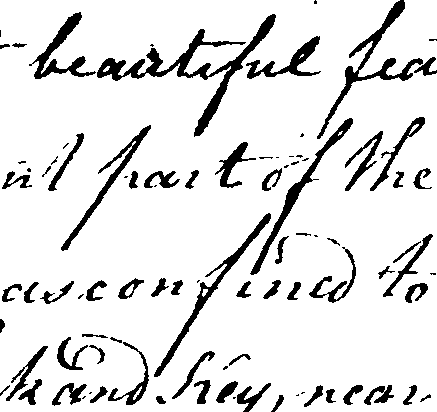 beautiful fea
nt part of the
as confined to
k and Key, near